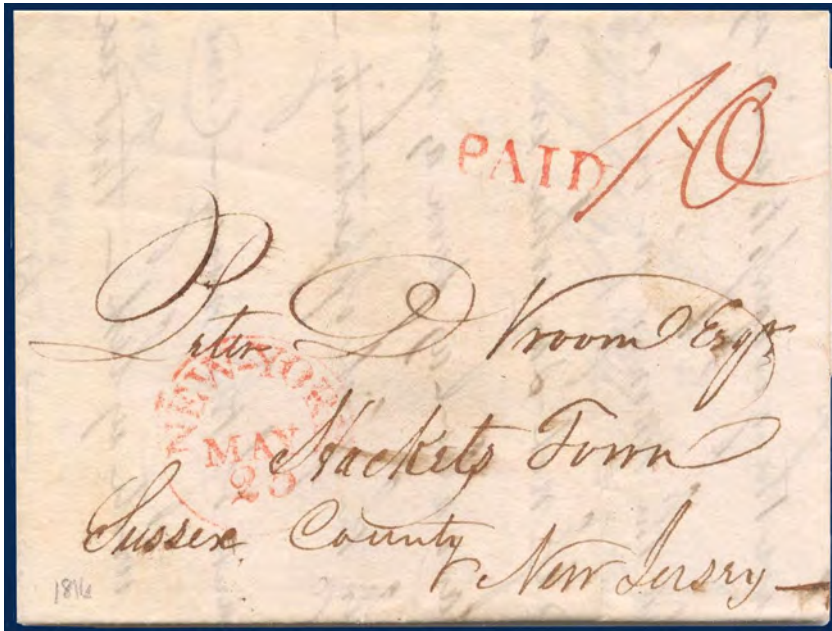 PAID 10
Peter D Vroom Esqr
NEW-YORK
MAY
25
Hackets Town
Sussex County
New Jersey
1816